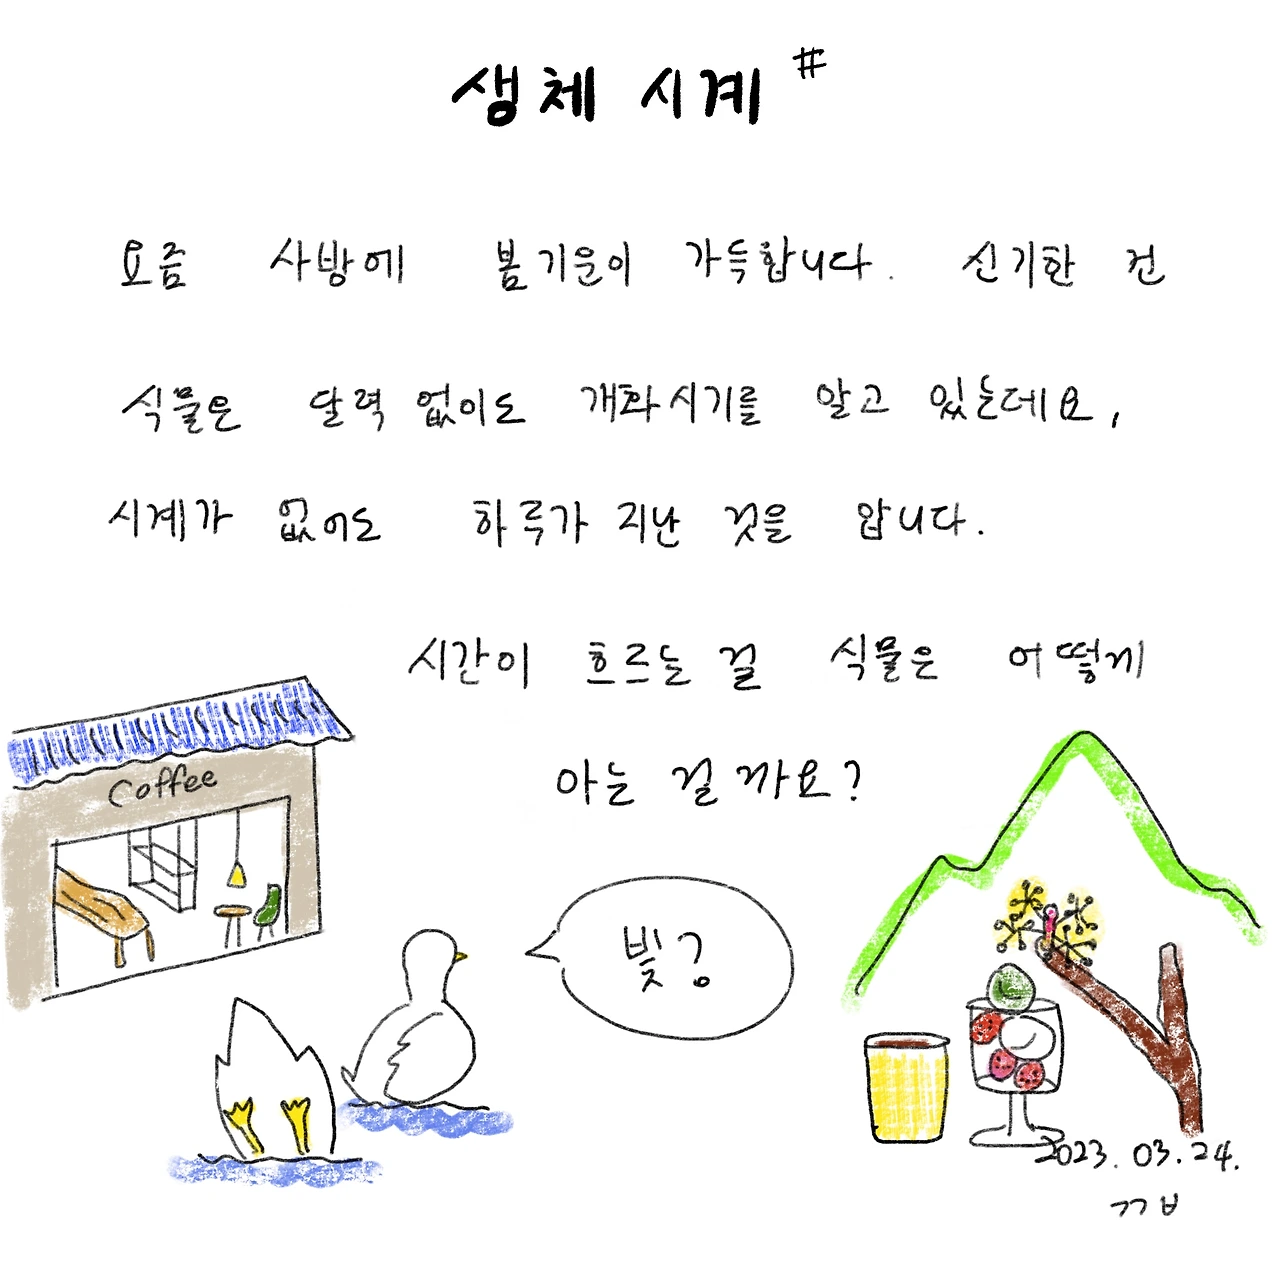 생체 시계 #
요즘 사방에 봄기운이 가득합니다. 신기한 건
식물은 달력 없이도 개화시기를 알고 있는데요,
시계가 없어도 하루가 지난 것을 압니다.
시간이 흐르는 걸 식물은 어떻게
아는 걸까요?
Coffee
빛?
2023. 03. 24.
ㄲㅂ